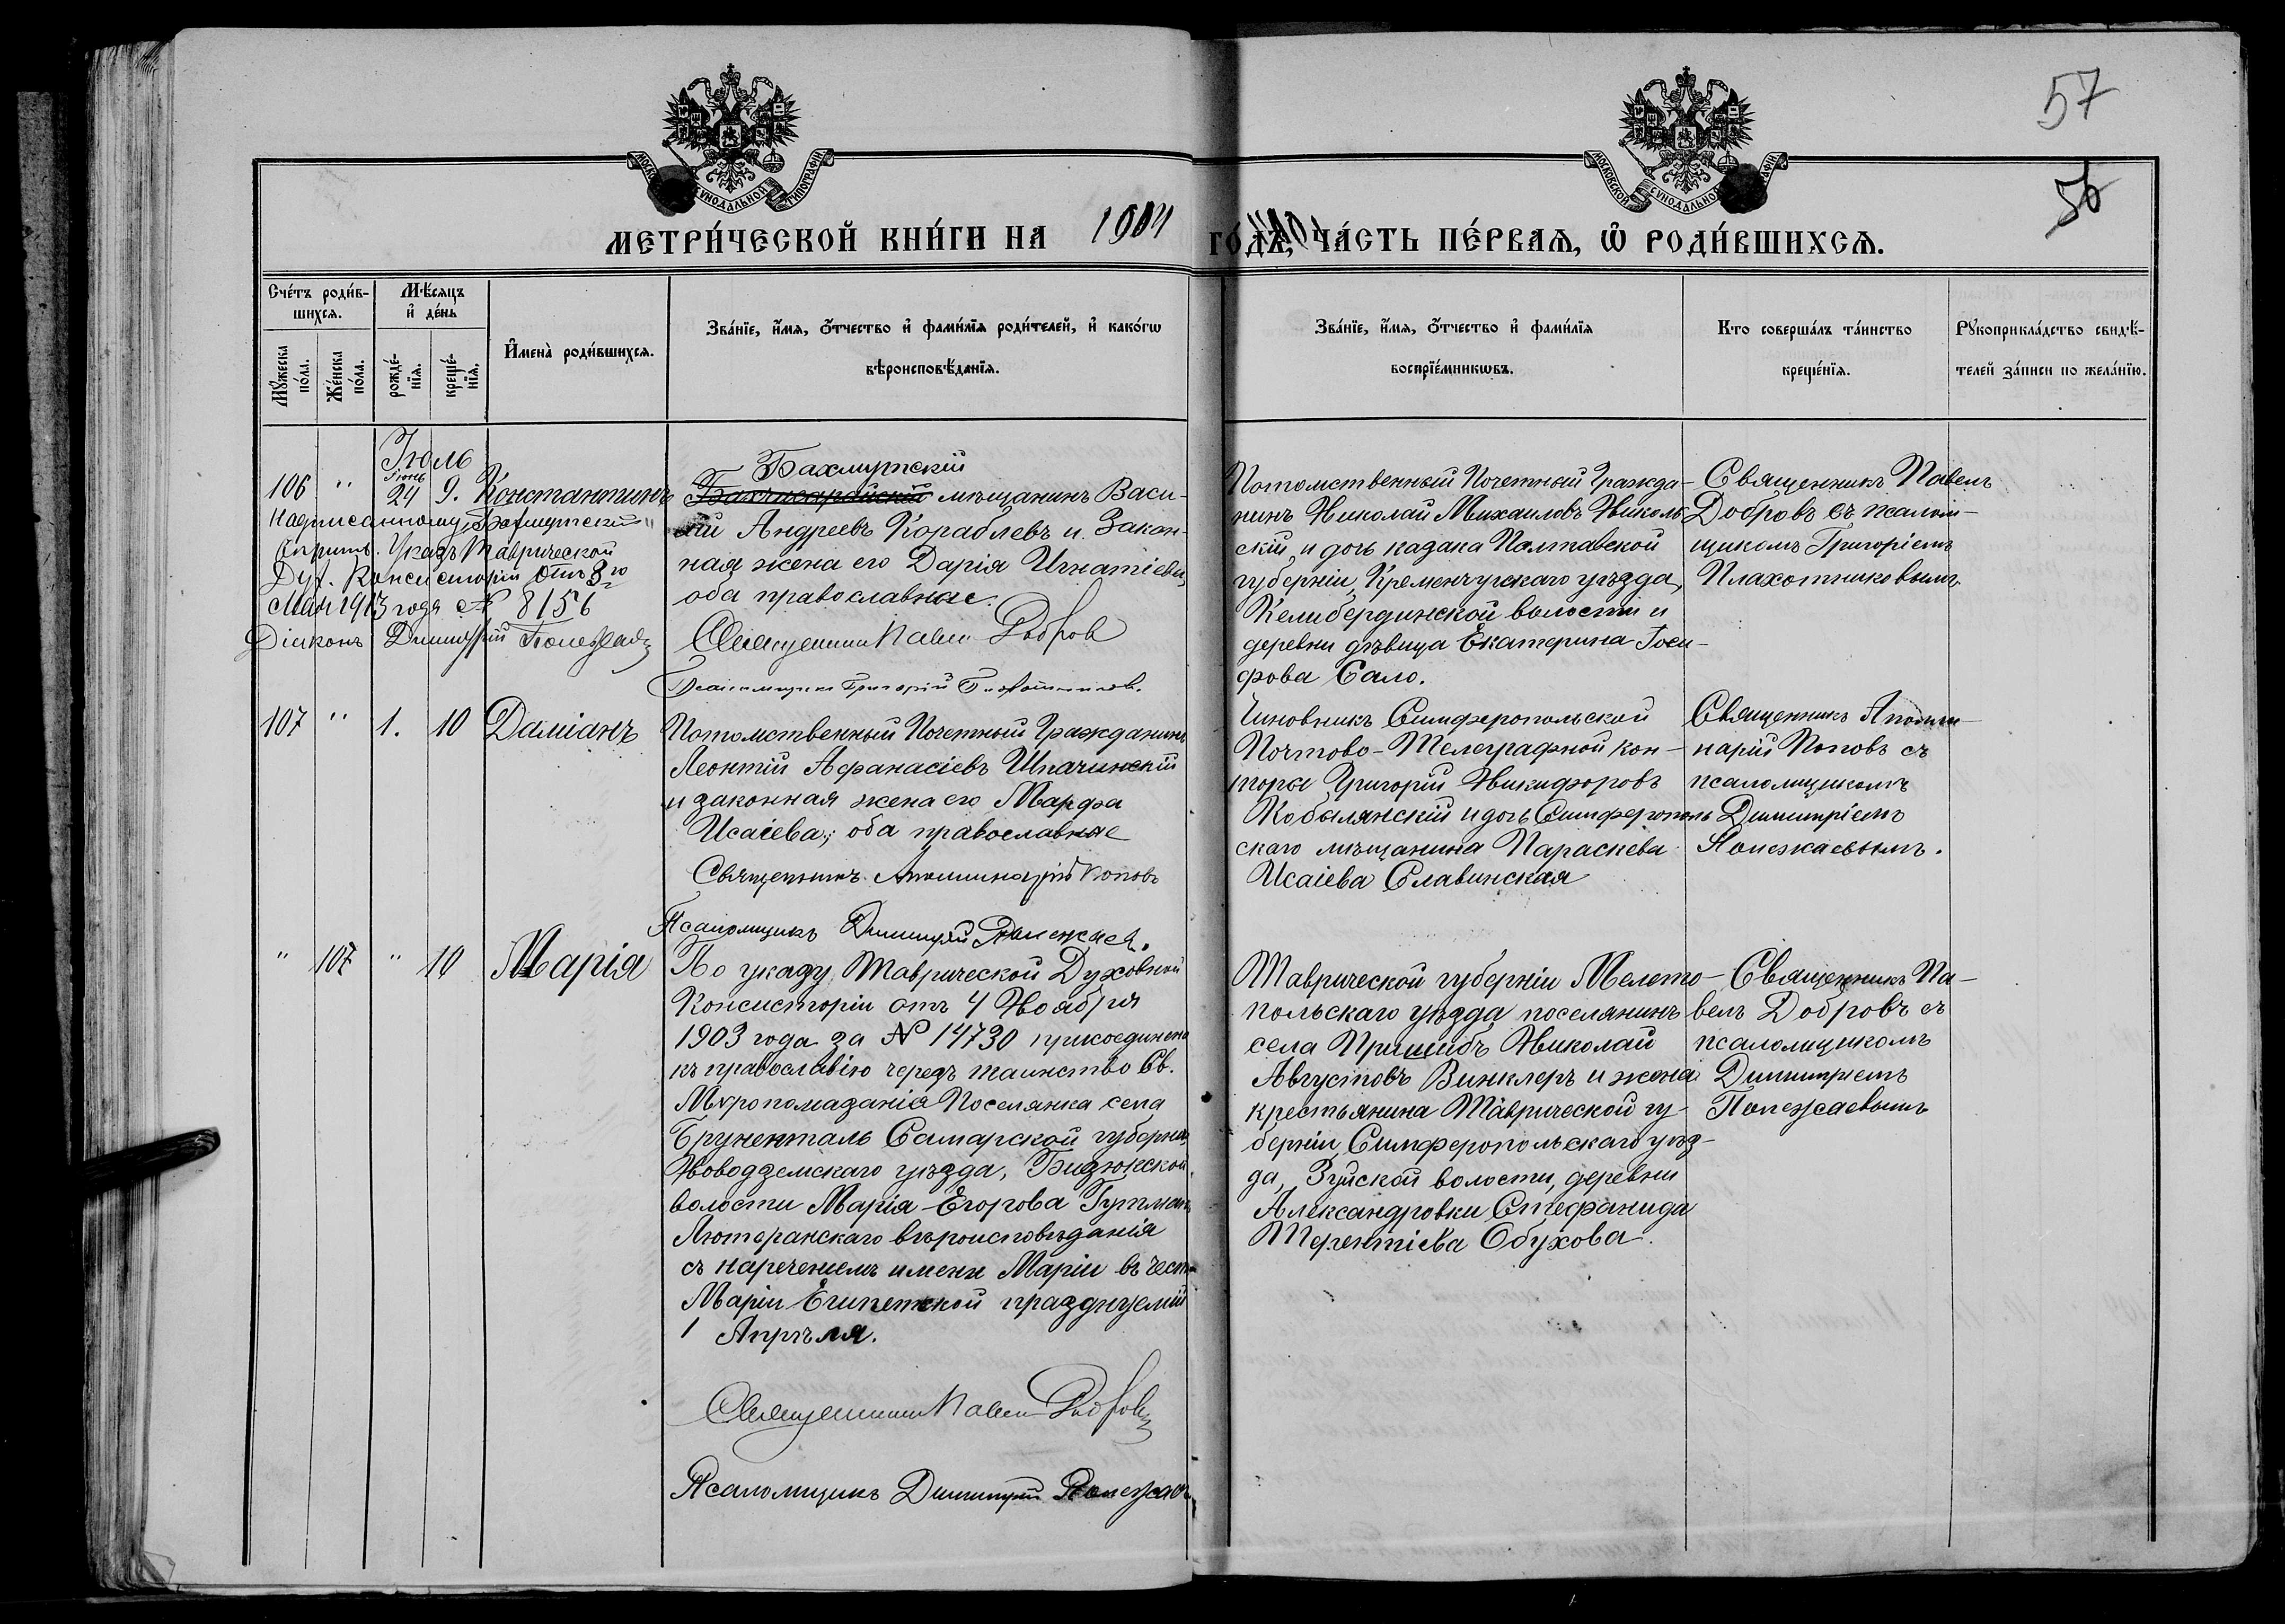 57
56
МОСКОВСКОЙ СУНОДАЛЬНОЙ ТИПОГРАФІИ
МЕТРИ́ЧЕСКОЙ КНИ́ГИ НА 1904 ГО́ДЪ, ЧА́СТЬ ПЕ́РВАЯ, Ѽ РОДИ́ВШИХСЯ.
Сче́тъ роди́в-
шихся.
Мѣ́сяцъ
и҆ де́нь
Мꙋ́жеска
по́ла.
Же́нска
по́ла.
рожде́-
нїя.
креще́-
нїя.
И҆мена̀ роди́вшихся.
Зва́нїе, и҆́мя, ѻ҆́тчество и҆ фами́лїя роди́телей, и҆ како́гѡ
вѣроисповѣ́данїя.
Зва́нїе, и҆́мя, ѻ҆́тчество и҆ фами́лїя
воспрїе́мникѡвъ.
Кто соверша́лъ та́инство
креще́нїя.
Рꙋкоприкла́дство свидѣ́-
телей за́писи по жела́нїю.
Іюль
106 " Іюнь 24 9. Константинъ
Надписанному „Бахмутскій"
вѣрить. Указъ Таврической
Дух. Консисторіи отъ 8го
Мая 1913 года № 8156
Діаконъ Димитрій Полежаевъ
Бахмутскій
Бахчисарайскій мѣщанинъ Васи-
лій Андреевъ Кораблевъ и Закон-
ная жена его Дарія Игнатіева,
оба православные.
Священникъ Павелъ Добровъ
Псаломщикъ Григорій Плахотниковъ.
Потомственный Почетный Гражда-
нинъ Николай Михаиловъ Николь
скій и дочь казака Полтавской
губерніи, Кременчугскаго уѣзда,
Келибердинской волости и
деревни дѣвица Екатерина Іоси-
фова Сало.
Священникъ Павелъ
Добровъ съ псалом-
щикомъ Григоріемъ
Плахотниковымъ
107 " 1. 10 Даміанъ
Потомственный Почетный Гражданинъ
Леонтій Афанасіевъ Шпачинскій
и законная жена его Марфа
Исаіева, оба православные
Священникъ Аполлинарій Поповъ
Псаломщикъ Димитрій Полежаев.
Чиновникъ Симферопольской
Почтово-Телеграфной кон-
торы Григорій Никифоровъ
Кобылянскій и дочь Симферополь
скаго мѣщанина Параскева
Исаіева Славинская
Священникъ Аполли-
нарій Поповъ съ
псаломщикомъ
Димитріемъ
Полежаевымъ.
" 107 " 10 Марія
По указу Таврической Духовной
Консисторіи отъ 4 Ноября
1903 года за № 14730 присоединена
къ православію чрезъ таинство Св.
Мѵропомазанія Поселянка села
Брунентталь Самарской губерніи,
Новоузенскаго уѣзда, Бизюкской
волости Марія Егорова Гутманъ
Лютеранскаго вѣроисповѣданія
съ нареченіемъ имени Маріи въ честь
Маріи Египетской празднуемой
1 Апрѣля.
Священникъ Павелъ Добровъ
Псаломщикъ Димитрій Полежаевъ
Таврической губерніи Мелито-
польскаго уѣзда поселянинъ
села Пришибъ Николай
Августовъ Винклеръ и жена
крестьянина Таврической гу-
берніи Симферопольскаго уѣз-
да, Зуйской волости, деревни
Александровки Стефанида
Терентіева Обухова.
Священникъ Па-
велъ Добровъ съ
псаломщикомъ
Димитріемъ
Полежаевымъ